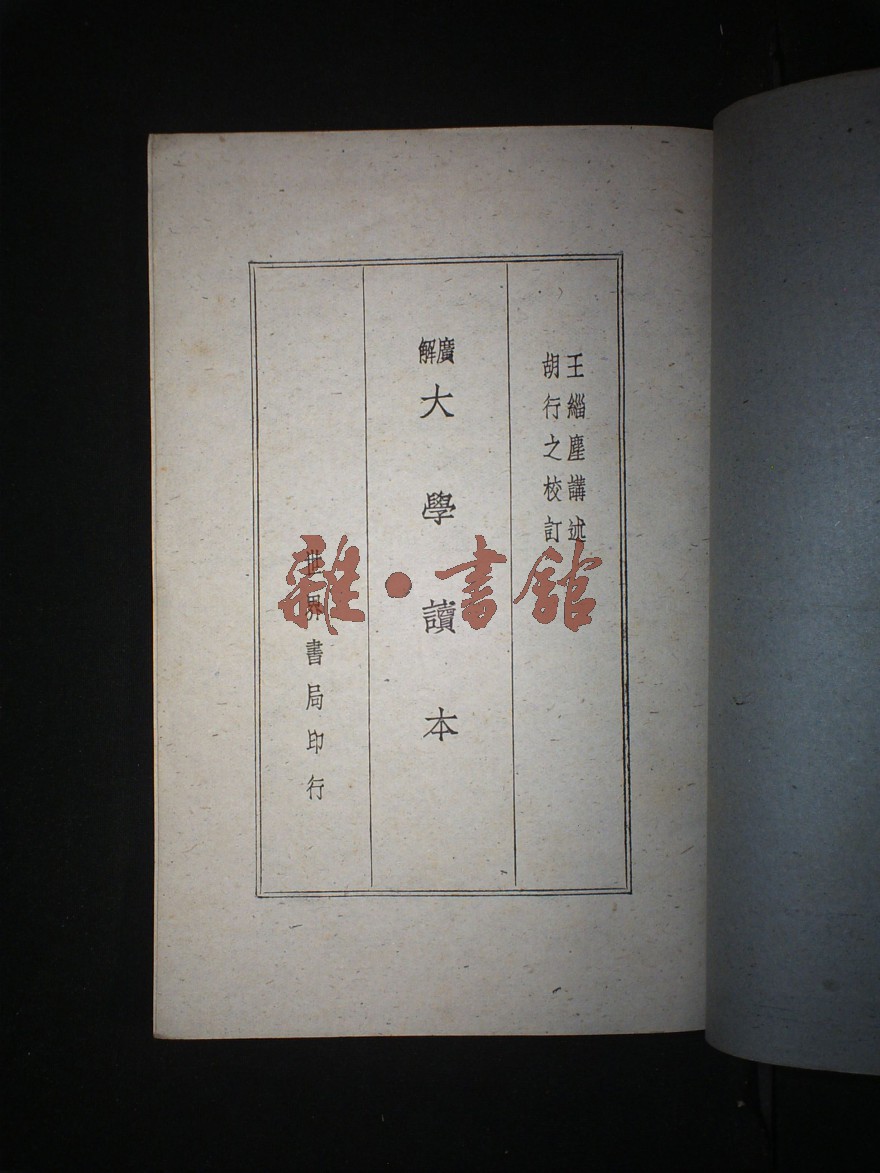 王緇塵講述
胡行之校訂
廣解
大學讀本
世界書局印行
雜·書館